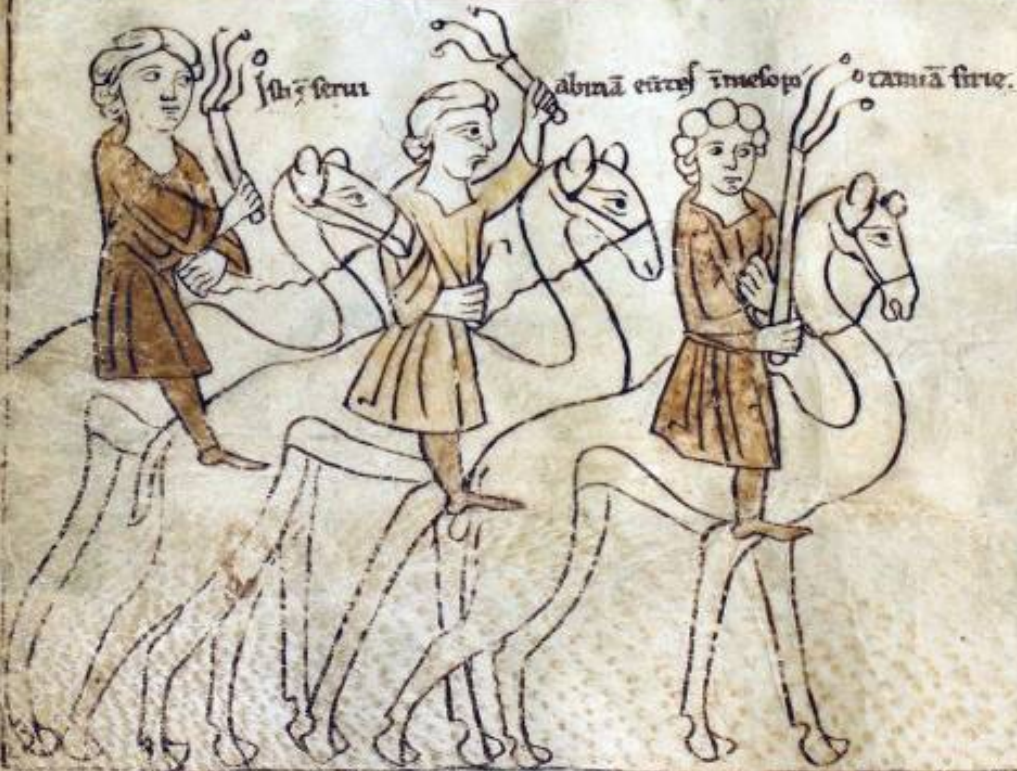 Isti s̄ serui abraā eūtes īmesopo tamiā sirie.